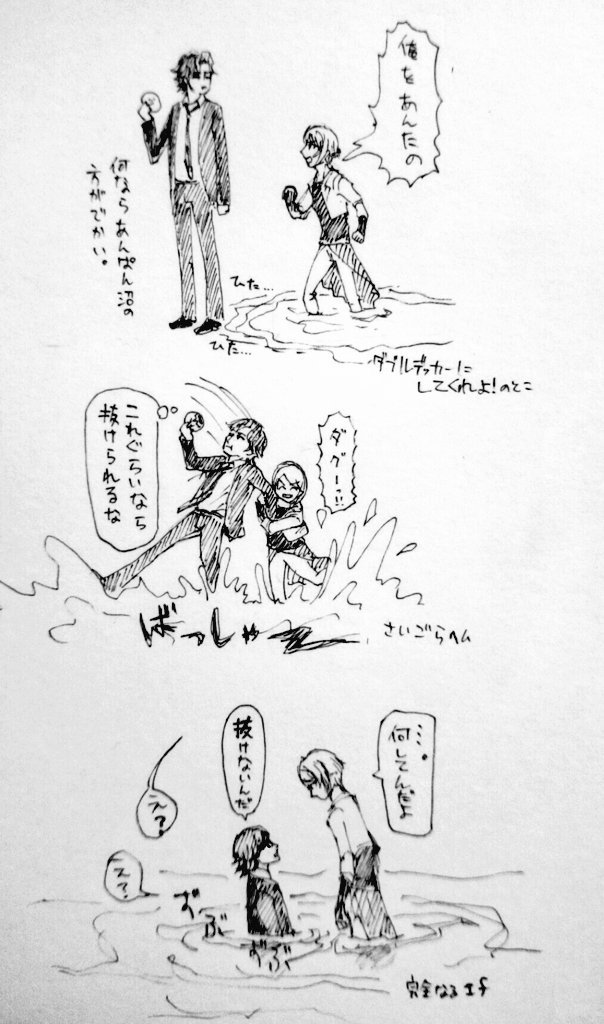 俺をあんたの
何ならあんぱん沼の
方がでかい。
ひた…
ひた…
ダブルデッカーに
してくれよ!のとこ
ダグーっ!!
これぐらいなら
抜けられるな
ばっしゃー
さいごらへん
…。
何してんだよ
抜けないんだ
え?
え?
ずぶ
ずぶ
完全なるif